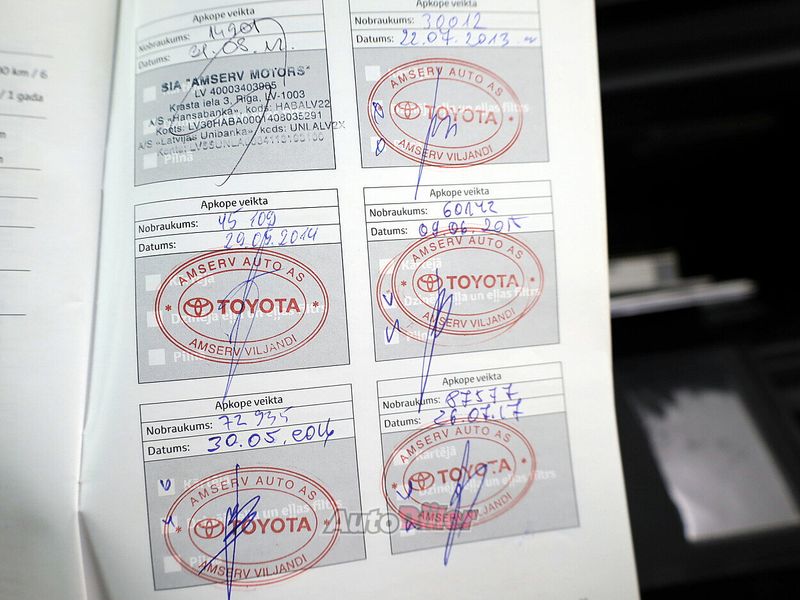 00 km / 6
/ 1 gada
Apkope veikta
Nobraukums: 14901
Datums: 31.05.12.
SIA "AMSERV MOTORS"
LV 40003403985
Krasta iela 3, Rīga, LV-1003
A/S «Hansabanka», kods: HABALV22
Konts: LV30HABA0001408035291
A/S «Latvijas Unibanka», kods: UNLALV2X
Pilna
Apkope veikta
Nobraukums: 30012
Datums: 22.07.2013
AMSERV AUTO AS
eļļas filtrs
TOYOTA
AMSERV VILJANDI
Apkope veikta
Nobraukums: 45 109
Datums: 29.05.2014
AMSERV AUTO AS
TOYOTA
AMSERV VILJANDI
Apkope veikta
Nobraukums: 60142
Datums: 09.06.2015
AMSERV AUTO AS
Kārtējā
TOYOTA
un eļļas filtrs
AMSERV VILJANDI
Apkope veikta
Nobraukums: 72 935
Datums: 30.05.2016
AMSERV AUTO AS
TOYOTA
AMSERV VILJANDI
Apkope veikta
Nobraukums: 87577
Datums: 26.07.17
AMSERV AUTO AS
Kārtējā
TOYOTA
Dzinēja eļļa un eļļas filtrs
AMSERV VILJANDI